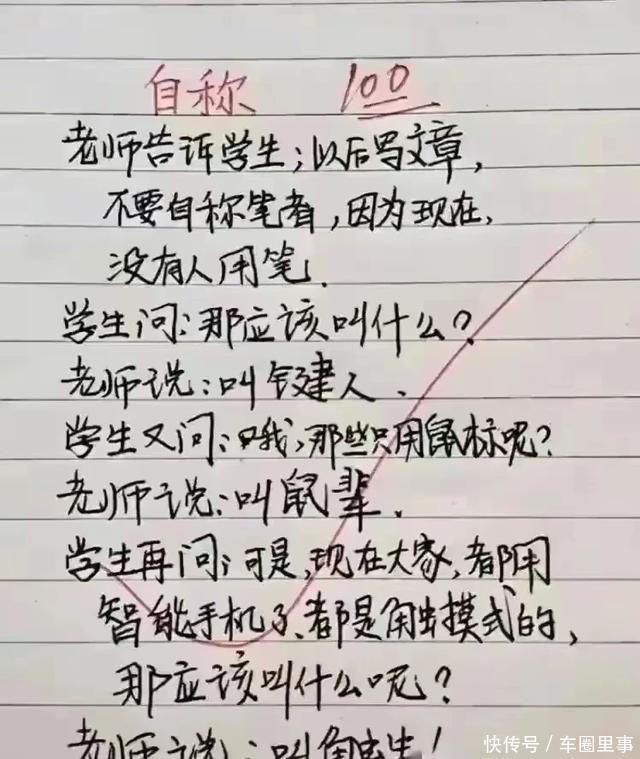 自称 100
老师告诉学生；以后写文章，
不要自称笔者，因为现在，
没有人用笔．
学生问：那应该叫什么？
老师说：叫键人．
学生又问：哦，那些只用鼠标呢？
老师说：叫鼠辈．
学生再问；可是，现在大家，都用
智能手机了、都是触模式的，
那应该叫什么呢？
老师说：叫触生！
快传号／车圈里事